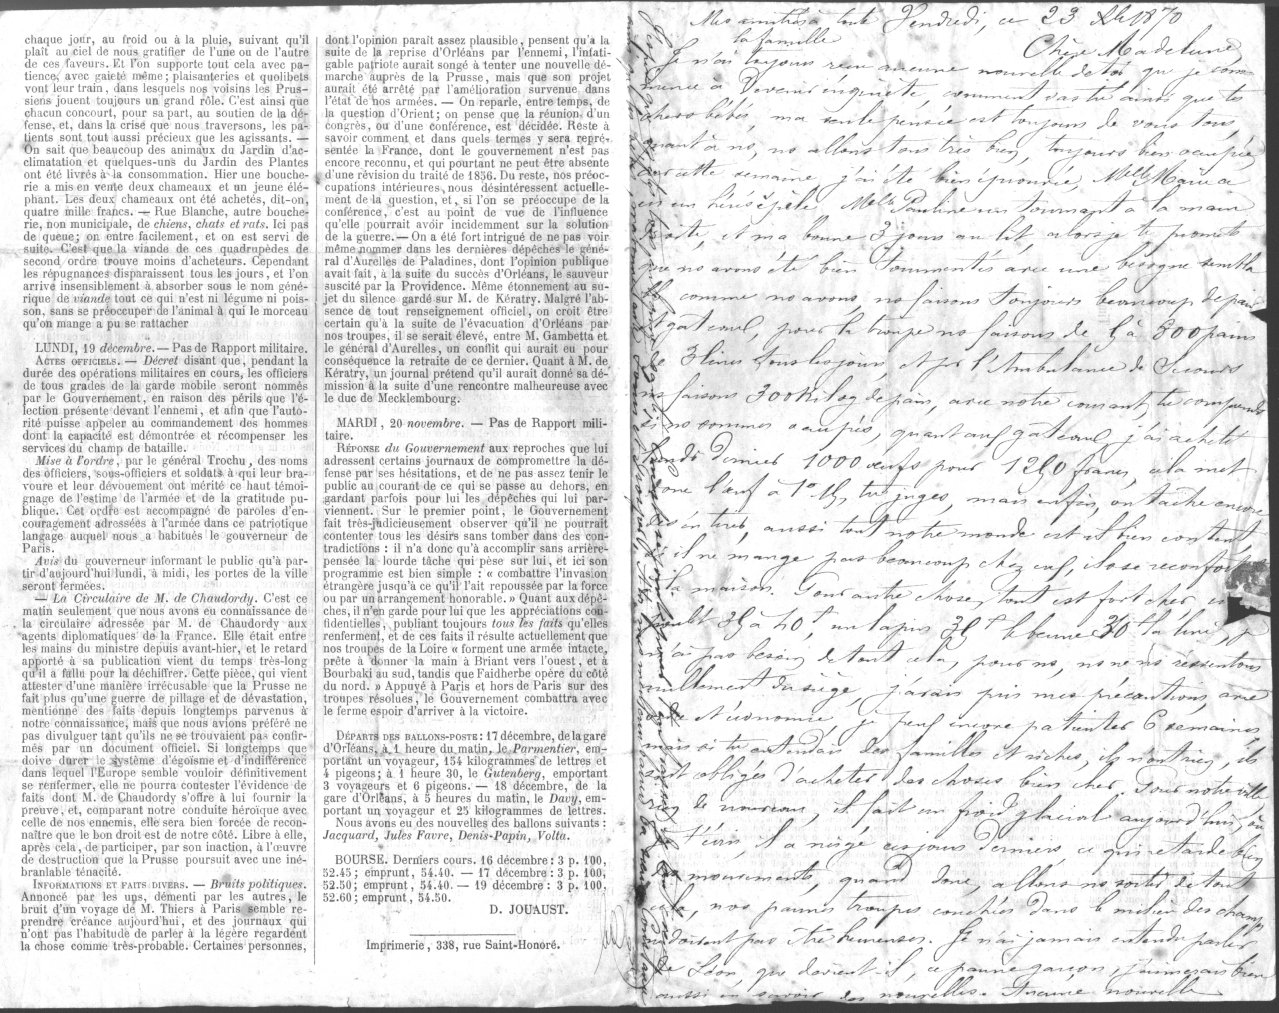 chaque jour, au froid ou à la pluie, suivant qu'il
plaît au ciel de nous gratifier de l'une ou de l'autre
de ces faveurs. Et l'on supporte tout cela avec pa-
tience, avec gaieté même; plaisanteries et quolibets
vont leur train, dans lesquels nos voisins les Prus-
siens jouent toujours un grand rôle. C'est ainsi que
chacun concourt, pour sa part, au soutien de la dé-
fense, et, dans la crise que nous traversons, les pa-
tients sont tout aussi précieux que les agissants. —
On sait que beaucoup des animaux du Jardin d'ac-
climatation et quelques-uns du Jardin des Plantes
ont été livrés à la consommation. Hier une bouche-
rie a mis en vente deux chameaux et un jeune élé-
phant. Les deux chameaux ont été achetés, dit-on,
quatre mille francs. — Rue Blanche, autre bouche-
rie, non municipale, de chiens, chats et rats. Ici pas
de queue; on entre facilement, et on est servi de
suite. C'est que la viande de ces quadrupèdes de
second ordre trouve moins d'acheteurs. Cependant
les répugnances disparaissent tous les jours, et l'on
arrive insensiblement à absorber sous le nom géné-
rique de viande tout ce qui n'est ni légume ni pois-
son, sans se préoccuper de l'animal à qui le morceau
qu'on mange a pu se rattacher
LUNDI, 19 décembre. — Pas de Rapport militaire.
ACTES OFFICIELS. — Décret disant que, pendant la
durée des opérations militaires en cours, les officiers
de tous grades de la garde mobile seront nommés
par le Gouvernement, en raison des périls que l'é-
lection présente devant l'ennemi, et afin que l'auto-
rité puisse appeler au commandement des hommes
dont la capacité est démontrée et récompenser les
services du champ de bataille.
Mise à l'ordre, par le général Trochu, des noms
des officiers, sous-officiers et soldats à qui leur bra-
voure et leur dévouement ont mérité ce haut témoi-
gnage de l'estime de l'armée et de la gratitude pu-
blique. Cet ordre est accompagné de paroles d'en-
couragement adressées à l'armée dans ce patriotique
langage auquel nous a habitués le gouverneur de
Paris.
Avis du gouverneur informant le public qu'à par-
tir d'aujourd'hui lundi, à midi, les portes de la ville
seront fermées.
— La Circulaire de M. de Chaudordy. C'est ce
matin seulement que nous avons eu connaissance de
la circulaire adressée par M. de Chaudordy aux
agents diplomatiques de la France. Elle était entre
les mains du ministre depuis avant-hier, et le retard
apporté à sa publication vient du temps très-long
qu'il a fallu pour la déchiffrer. Cette pièce, qui vient
attester d'une manière irrécusable que la Prusse ne
fait plus qu'une guerre de pillage et de dévastation,
mentionne des faits depuis longtemps parvenus à
notre connaissance, mais que nous avions préféré ne
pas divulguer tant qu'ils ne se trouvaient pas confir-
més par un document officiel. Si longtemps que
doive durer le système d'égoïsme et d'indifférence
dans lequel l'Europe semble vouloir définitivement
se renfermer, elle ne pourra contester l'évidence de
faits dont M. de Chaudordy s'offre à lui fournir la
preuve, et, comparant notre conduite héroïque avec
celle de nos ennemis, elle sera bien forcée de recon-
naître que le bon droit est de notre côté. Libre à elle,
après cela, de participer, par son inaction, à l'œuvre
de destruction que la Prusse poursuit avec une iné-
branlable ténacité.
INFORMATIONS ET FAITS DIVERS. — Bruits politiques.
Annoncé par les uns, démenti par les autres, le
bruit d'un voyage de M. Thiers à Paris semble re-
prendre créance aujourd'hui, et des journaux qui
n'ont pas l'habitude de parler à la légère regardent
la chose comme très-probable. Certaines personnes,
dont l'opinion paraît assez plausible, pensent qu'à la
suite de la reprise d'Orléans par l'ennemi, l'infati-
gable patriote aurait songé à tenter une nouvelle dé-
marche auprès de la Prusse, mais que son projet
aurait été arrêté par l'amélioration survenue dans
l'état de nos armées. — On reparle, entre temps, de
la question d'Orient; on pense que la réunion d'un
congrès, ou d'une conférence, est décidée. Reste à
savoir comment et dans quels termes y sera repré-
sentée la France, dont le gouvernement n'est pas
encore reconnu, et qui pourtant ne peut être absente
d'une révision du traité de 1856. Du reste, nos préoc-
cupations intérieures nous désintéressent actuelle-
ment de la question, et, si l'on se préoccupe de la
conférence, c'est au point de vue de l'influence
qu'elle pourrait avoir incidemment sur la solution
de la guerre. — On a été fort intrigué de ne pas voir
même nommer dans les dernières dépêches le géné-
ral d'Aurelles de Paladines, dont l'opinion publique
avait fait, à la suite du succès d'Orléans, le sauveur
suscité par la Providence. Même étonnement au su-
jet du silence gardé sur M. de Kératry. Malgré l'ab-
sence de tout renseignement officiel, on croit être
certain qu'à la suite de l'évacuation d'Orléans par
nos troupes, il se serait élevé, entre M. Gambetta et
le général d'Aurelles, un conflit qui aurait eu pour
conséquence la retraite de ce dernier. Quant à M. de
Kératry, un journal prétend qu'il aurait donné sa dé-
mission à la suite d'une rencontre malheureuse avec
le duc de Mecklembourg.
MARDI, 20 novembre. — Pas de Rapport mili-
taire.
RÉPONSE du Gouvernement aux reproches que lui
adressent certains journaux de compromettre la dé-
fense par ses hésitations, et de ne pas assez tenir le
public au courant de ce qui se passe au dehors, en
gardant parfois pour lui les dépêches qui lui par-
viennent. Sur le premier point, le Gouvernement
fait très-judicieusement observer qu'il ne pourrait
contenter tous les désirs sans tomber dans des con-
tradictions : il n'a donc qu'à accomplir sans arrière-
pensée la lourde tâche qui pèse sur lui, et ici son
programme est bien simple : « combattre l'invasion
étrangère jusqu'à ce qu'il l'ait repoussée par la force
ou par un arrangement honorable. » Quant aux dépê-
ches, il n'en garde pour lui que les appréciations con-
fidentielles, publiant toujours tous les faits qu'elles
renferment, et de ces faits il résulte actuellement que
nos troupes de la Loire « forment une armée intacte,
prête à donner la main à Briant vers l'ouest, et à
Bourbaki au sud, tandis que Faidherbe opère du côté
du nord. » Appuyé à Paris et hors de Paris sur des
troupes résolues, le Gouvernement combattra avec
le ferme espoir d'arriver à la victoire.
DÉPARTS DES BALLONS-POSTE : 17 décembre, de la gare
d'Orléans, à 1 heure du matin, le Parmentier, em-
portant un voyageur, 154 kilogrammes de lettres et
4 pigeons; à 1 heure 30, le Gutenberg, emportant
3 voyageurs et 6 pigeons. — 18 décembre, de la
gare d'Orléans, à 5 heures du matin, le Davy, em-
portant un voyageur et 25 kilogrammes de lettres.
Nous avons eu des nouvelles des ballons suivants :
Jacquard, Jules Favre, Denis-Papin, Volta.
BOURSE. Derniers cours. 16 décembre : 3 p. 100,
52.45; emprunt, 54.40. — 17 décembre : 3 p. 100,
52.50; emprunt, 54.40. — 19 décembre : 3 p. 100,
52.60; emprunt, 54.50.
D. JOUAUST.
Imprimerie, 338, rue Saint-Honoré.
Mes amitiés à toute Vendredi, ce 23 Xbre 1870
la famille
Chère Madeleine,
Je n'ai toujours reçu aucune nouvelle de toi que je com-
mence à devenir inquiète, comment vas tu ainsi que tes
chers bébés, ma seule pensée est toujours de vous tous,
quant à ns, ns allons tous très bien, toujours bien occupée,
cette semaine j'ai été bien éprouvée, Melle Maria a
eu un hérésipèle, Melle Pauline un tournant à la main
droite, et ma bonne 3 jours au lit alors je te promets
que ns avons été bien tourmentés avec une besogne
comme ns avons, ns faisons toujours beaucoup de pain
et gateaux, pour la troupe ns faisons de à 300 pains
de 3 livres tous les jours et pr l'Ambulance de Secours
ns faisons 300 Kilog de pain, avec notre courant, tu comprends
si ns sommes occupés, quant aux gateaux, j'ai acheté
dernier 1000 œufs pour francs, cela met
donc l'œuf à tu juges, mais enfin, on tâche encore
de s'en tirer, aussi tout notre monde est il bien content
il ne mange pas beaucoup chez eux, ils se reconfortent
à la maison. Pour autre chose, tout est fort cher, un
poulet 35 à 40f, un lapin le beurre 30f la livre, je
n'ai pas besoin de tout cela, pour ns, ns ne ns ressentons
nullement du siège, j'avais pris mes précautions, avec
économie je peux encore patienter 6 semaines,
mais si tu entendais des familles et riches, ils n'ont rien, ils
sont obligés d'acheter des choses bien cher. Pour notre ville
rien de nouveau, il fait un froid glacial aujourd'hui,
il a neigé ces jours derniers ce qui retarde bien
mouvements, quand donc, allons ns sortir de tout
cela, nos pauvres troupes couchées dans le milieu des champs
ne doivent pas être heureuses. Je n'ai jamais entendu parler
de Léon, que devient-il, ce pauvre garçon, j'aimerais bien
aussi en savoir des nouvelles. Aucune nouvelle